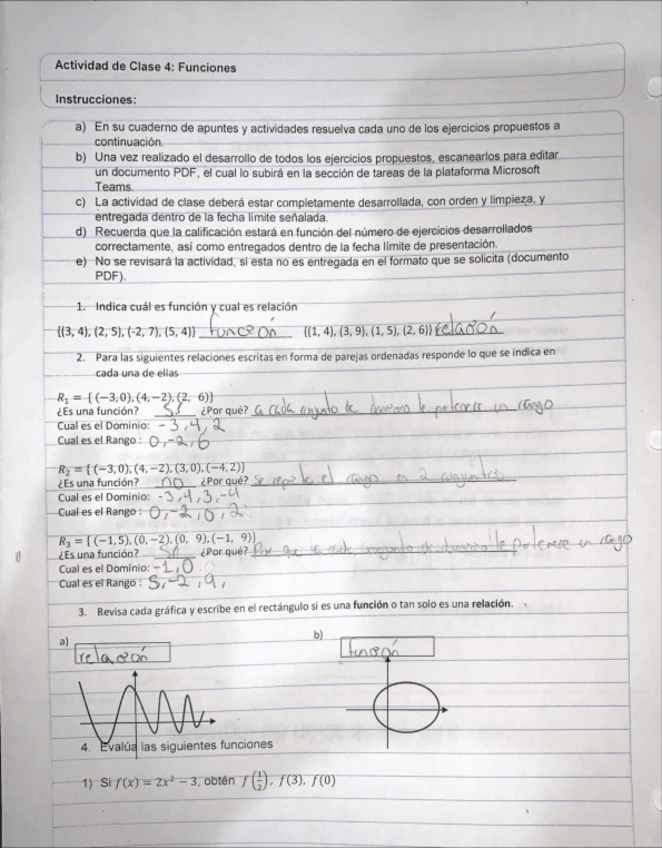 Actividad de Clase 4: Funciones
Instrucciones:
a) En su cuaderno de apuntes y actividades resuelva cada uno de los ejercicios propuestos a
continuación.
b) Una vez realizado el desarrollo de todos los ejercicios propuestos, escanearlos para editar
un documento PDF, el cual lo subirá en la sección de tareas de la plataforma Microsoft
Teams.
c) La actividad de clase deberá estar completamente desarrollada, con orden y limpieza, y
entregada dentro de la fecha límite señalada.
d) Recuerda que la calificación estará en función del número de ejercicios desarrollados
correctamente, así como entregados dentro de la fecha límite de presentación.
e) No se revisará la actividad, si esta no es entregada en el formato que se solicita (documento
PDF).
1. Indica cuál es función y cual es relación
{(3, 4), (2, 5), (-2, 7), (5, 4)} función {(1, 4), (3, 9), (1, 5), (2, 6)} relación
2. Para las siguientes relaciones escritas en forma de parejas ordenadas responde lo que se indica en
cada una de ellas
R₁ = { (−3,0), (4,−2), (2, 6)}
¿Es una función? Si ¿Por qué? a cada conjunto de dominio le pertenece un rango
Cual es el Dominio: -3,4,2
Cual es el Rango : 0,-2,6
R₂ = { (−3,0), (4,−2), (3,0), (−4,2)}
¿Es una función? no ¿Por qué? se repite el rango en 2 conjuntos
Cual es el Dominio: -3,4,3,-4
Cual es el Rango : 0,-2,0,2
R₃ = { (−1,5), (0,−2), (0, 9), (−1, 9)}
¿Es una función? Si ¿Por qué? Por que a cada conjunto de dominio le pertenece un rango
Cual es el Dominio: -1,0
Cual es el Rango : 5,-2,9,
3. Revisa cada gráfica y escribe en el rectángulo si es una función o tan solo es una relación.
a) relación b) función
4. Evalúa las siguientes funciones
1) Si f(x) = 2x² − 3, obtén f(1/2), f(3), f(0)